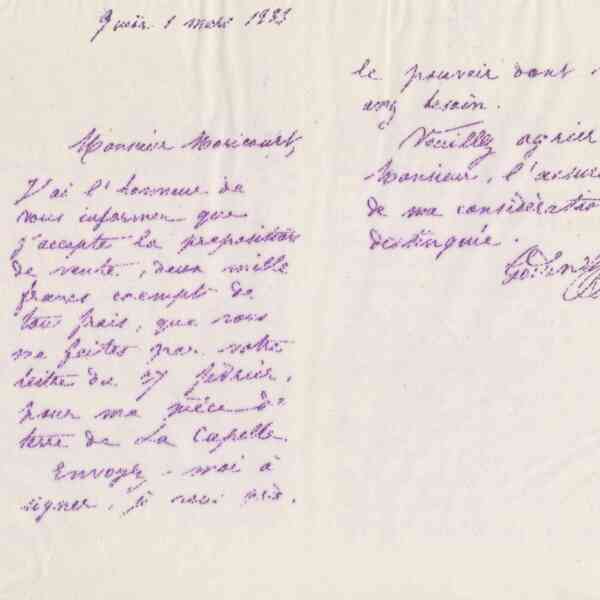 1 mars 1933
Monsieur Moricourt,
J'ai l'honneur de
vous informer que
j'accepte la proposition
de vente, deux mille
francs exempt de
tou frais, que vous
me faites par votre
lettre du 27 février,
pour ma pièce de
terre de La Capelle.
Envoyez-moi à
signer, je vous prie,
le pouvoir dont
avez besoin.
Veuillez agréer
Monsieur, l'assura
de ma considératio
distinguée.